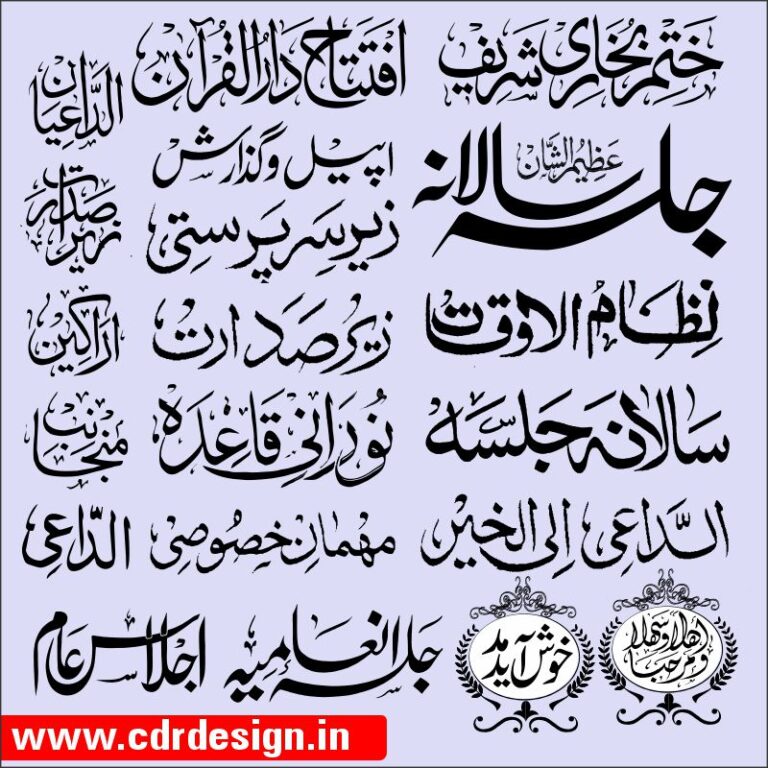 ختم بخاری شریف
افتتاح دارالقرآن
الداعیان
عظیم الشان
جلسہ سالانہ
اپیل و گذارش
زیر صدارت
زیر سرپرستی
نظام الاوقات
زیر صدارت
اراکین
سالانہ جلسہ
نورانی قاعدہ
منجانب
الداعی الی الخیر
مہمان خصوصی
الداعی
اھلا و سھلا
و مرحبا
خوش آمدید
جلسہ انعامیہ
اجلاس عام
www.cdrdesign.in